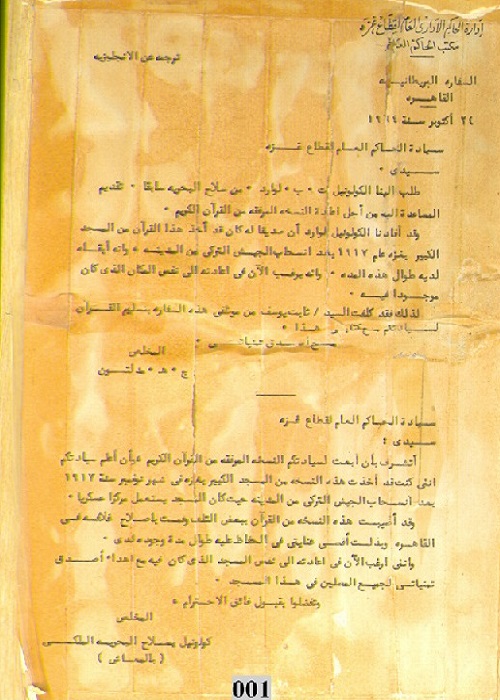 إدارة الحاكم الإدارى العام لقطاع غزه
مكتب الحاكم العام
ترجمه عن الانجليزيه
السفاره البريطانيه
القاهره
٢٤ أكتوبر سنة ١٩٦٦
سيادة الحاكم العام لقطاع غزه
سيدى ٠
طلب الينا الكولونيل ت ٠ ب ٠ لوارد ٠ من سلاح البحريه سابقا ٠ تقديم
المساعدة اليه من أجل اعادة النسخه المرفقه من القرآن الكريم ٠
وقد أفادنا الكولونيل لوارد أن صديقا له كان قد أخذ هذا القرآن من المسجد
الكبير بغزه عام ١٩١٧ بعد انسحاب الجيش التركى من المدينه ٠ وانه أبقاه
لديه طوال هذه المده ٠ وانه يرغب الآن فى اعادته الى نفس المكان الذى كان
موجودا فيه ٠
لذلك فقد كلفت السيد / ثابت يوسف من موظفى هذه السفاره بتسليم القرآن
لسيادتكم هذا ٠
مع أصدق تمنياتى ٠
المخلص
ج ٠ هـ ٠ مدلتون
سيادة الحاكم العام لقطاع غزه
سيدى :
أتشرف بأن أبعث لسيادتكم النسخه المرفقه من القرآن الكريم علما بأن أعلم سيادتكم
اننى كنت قد أخذت هذه النسخه من المسجد الكبير بغزه فى شهر نوفمبر سنة ١٩١٧
بعد انسحاب الجيش التركى من المدينه حيث كان المسجد يستعمل مركزا عسكريا ٠
وقد أصيبت هذه النسخه من القرآن ببعض التلف وقمت باصلاح غلافه فى
القاهره وبذلت أقصى عنايتى فى الحفاظ عليه طوال مدة وجوده لدى ٠
واننى ارغب الآن فى اعادته الى نفس المسجد الذى كان فيه مع اهداء أصدق
تمنياتى لجميع المصلين فى هذا المسجد ٠
وتفضلوا بقبول فائق الاحترام ٠
المخلص
كولونيل بسلاح البحريه الملكى
( بالمعاش )
001